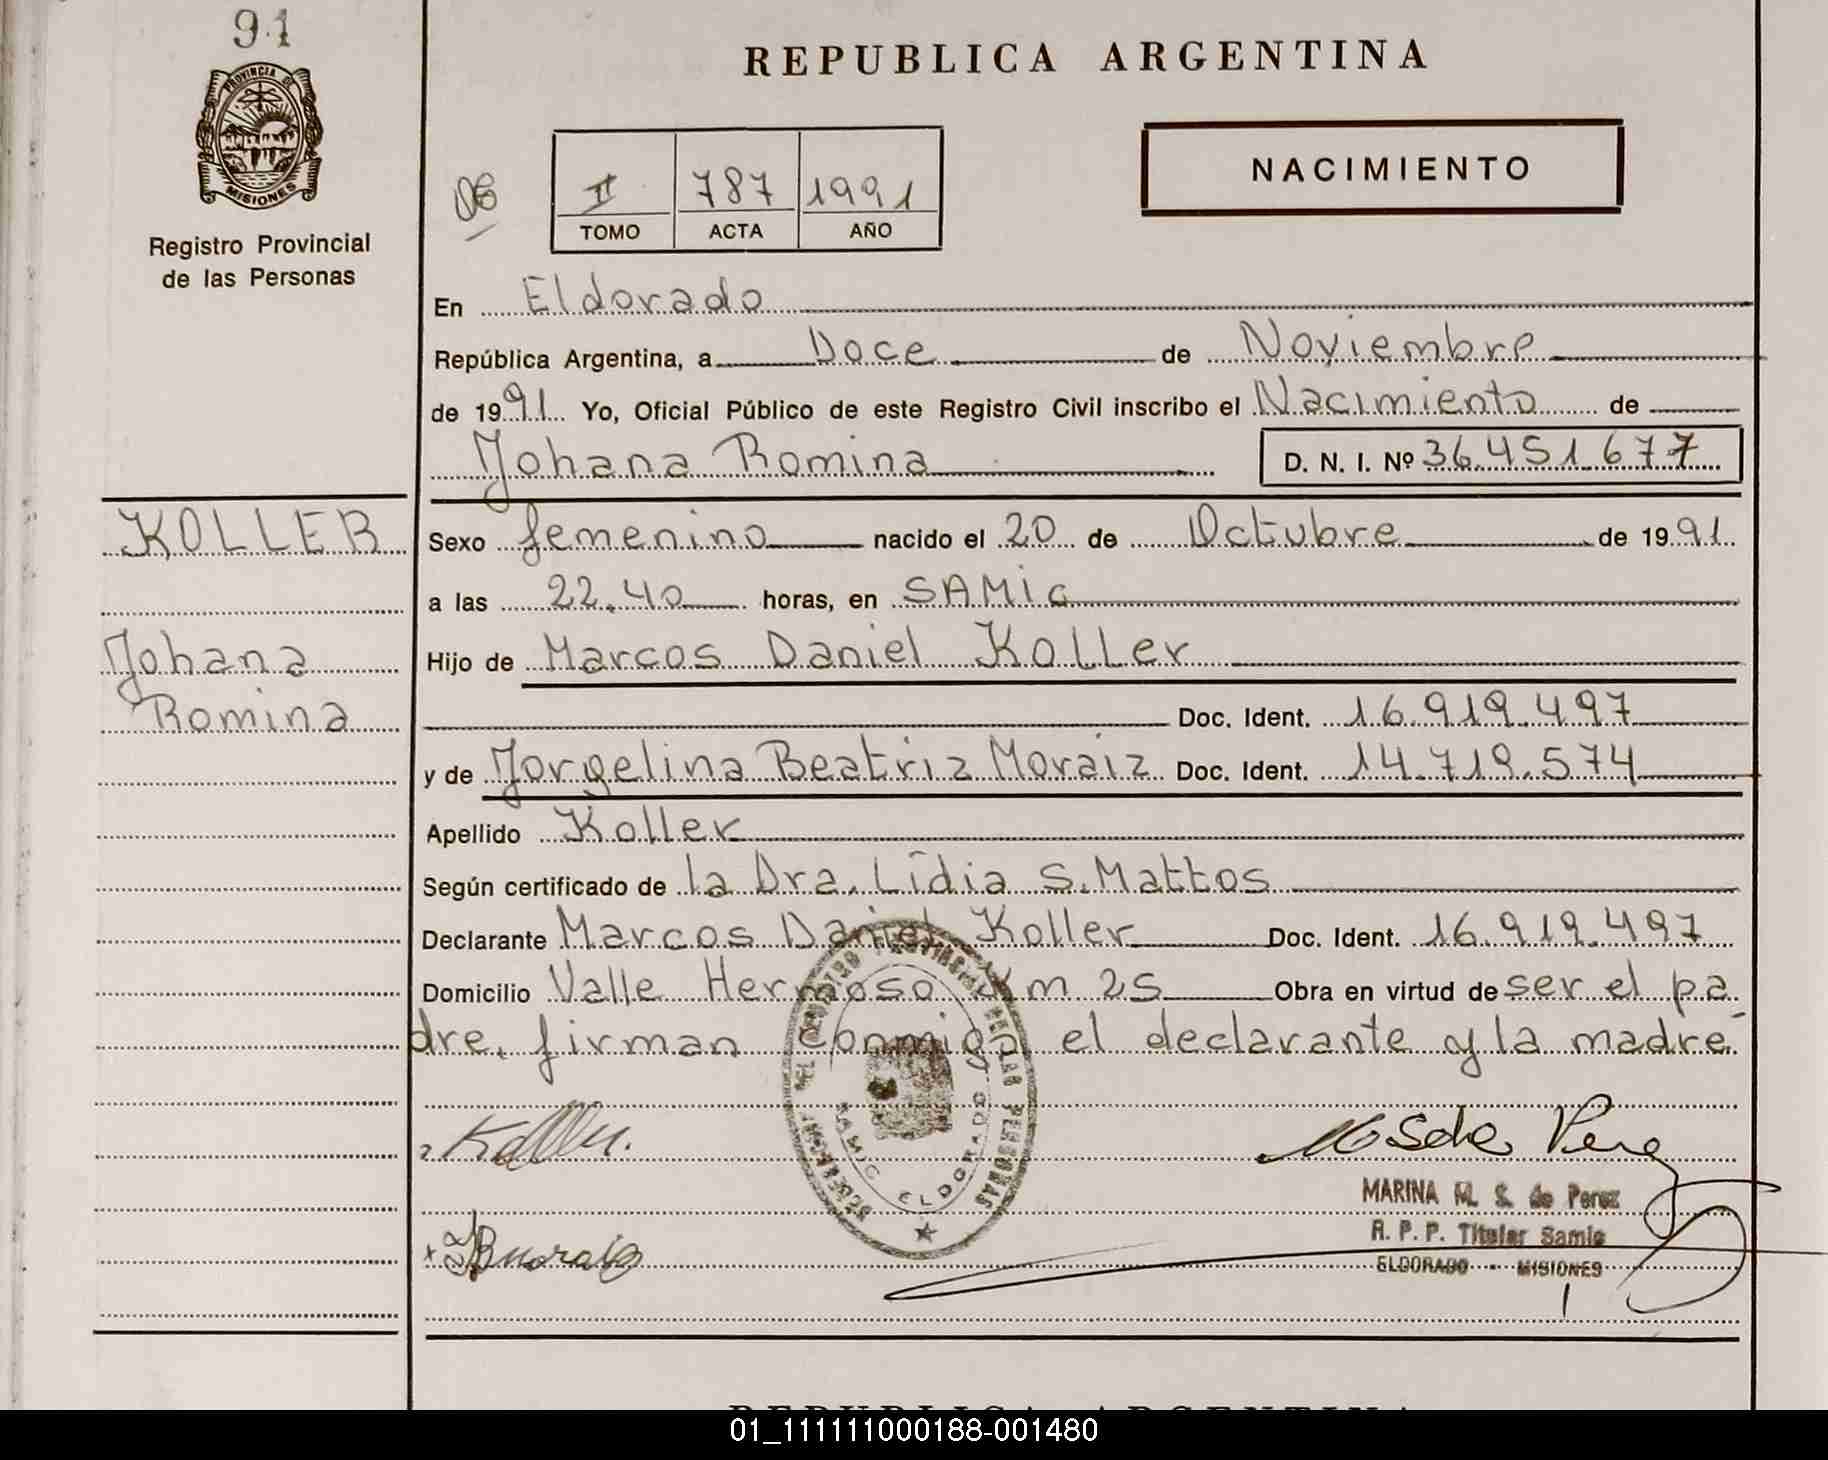 91
REPUBLICA ARGENTINA
PROVINCIA DE
MISIONES
Registro Provincial
de las Personas
II 787 1991
TOMO ACTA AÑO
NACIMIENTO
En Eldorado
República Argentina, a Doce de Noviembre
de 1991 Yo, Oficial Público de este Registro Civil inscribo el Nacimiento de
Johana Romina D. N. I. Nº 36.451.677
KOLLER
Johana
Romina
Sexo femenino nacido el 20 de Octubre de 1991
a las 22.40 horas, en SAMiC
Hijo de Marcos Daniel Koller
Doc. Ident. 16.919.497
y de Jorgelina Beatriz Moraiz Doc. Ident. 14.719.574
Apellido Koller
Según certificado de la Dra. Lidia S. Mattos
Declarante Marcos Daniel Koller Doc. Ident. 16.919.497
Domicilio Valle Hermoso Km 25 Obra en virtud de ser el pa-
dre, firman conmigo el declarante y la madre
Koller
PROVINCIAL DE LAS PERSONAS
SAMIC ELDORADO
MARINA M. S. de Perez
R. P. P. Titular Samic
ELDORADO - MISIONES
REPUBLICA ARGENTINA
01_111111000188-001480